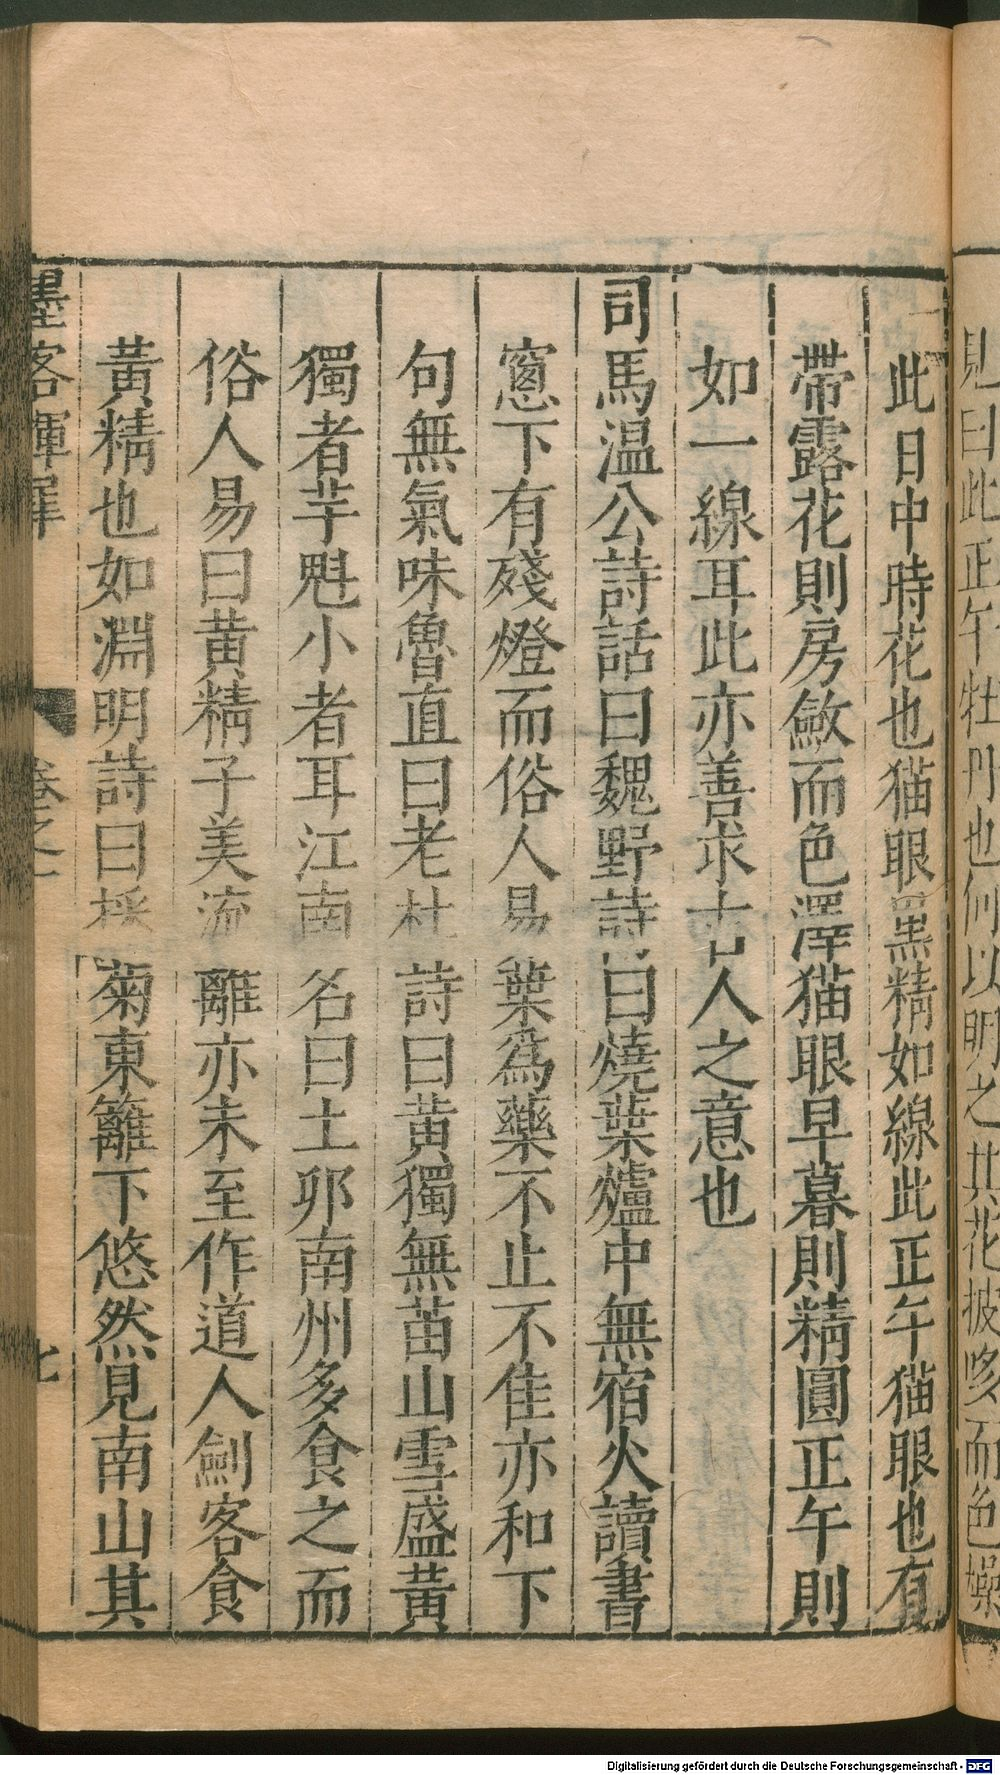 此日中時花也猫眼黑精如線此正午猫眼也有
帶露花則房斂而色澤猫眼早暮則精圓正午則
如一線耳此亦善求古人之意也
司馬温公詩話曰魏野詩曰燒葉爐中無宿火讀書
窻下有殘燈而俗人易葉爲藥不止不佳亦和下
句無氣味魯直曰老杜詩曰黃獨無苗山雪盛黃
獨者芋魁小者耳江南名曰土卵南州多食之而
俗人易曰黃精子美流離亦未至作道人劍客食
黃精也如淵明詩曰採菊東籬下悠然見南山其
墨客揮犀 卷之一 七
見曰此正午牡丹也何以明之其花披哆而色燥
Digitalisierung gefördert durch die Deutsche Forschungsgemeinschaft - DFG